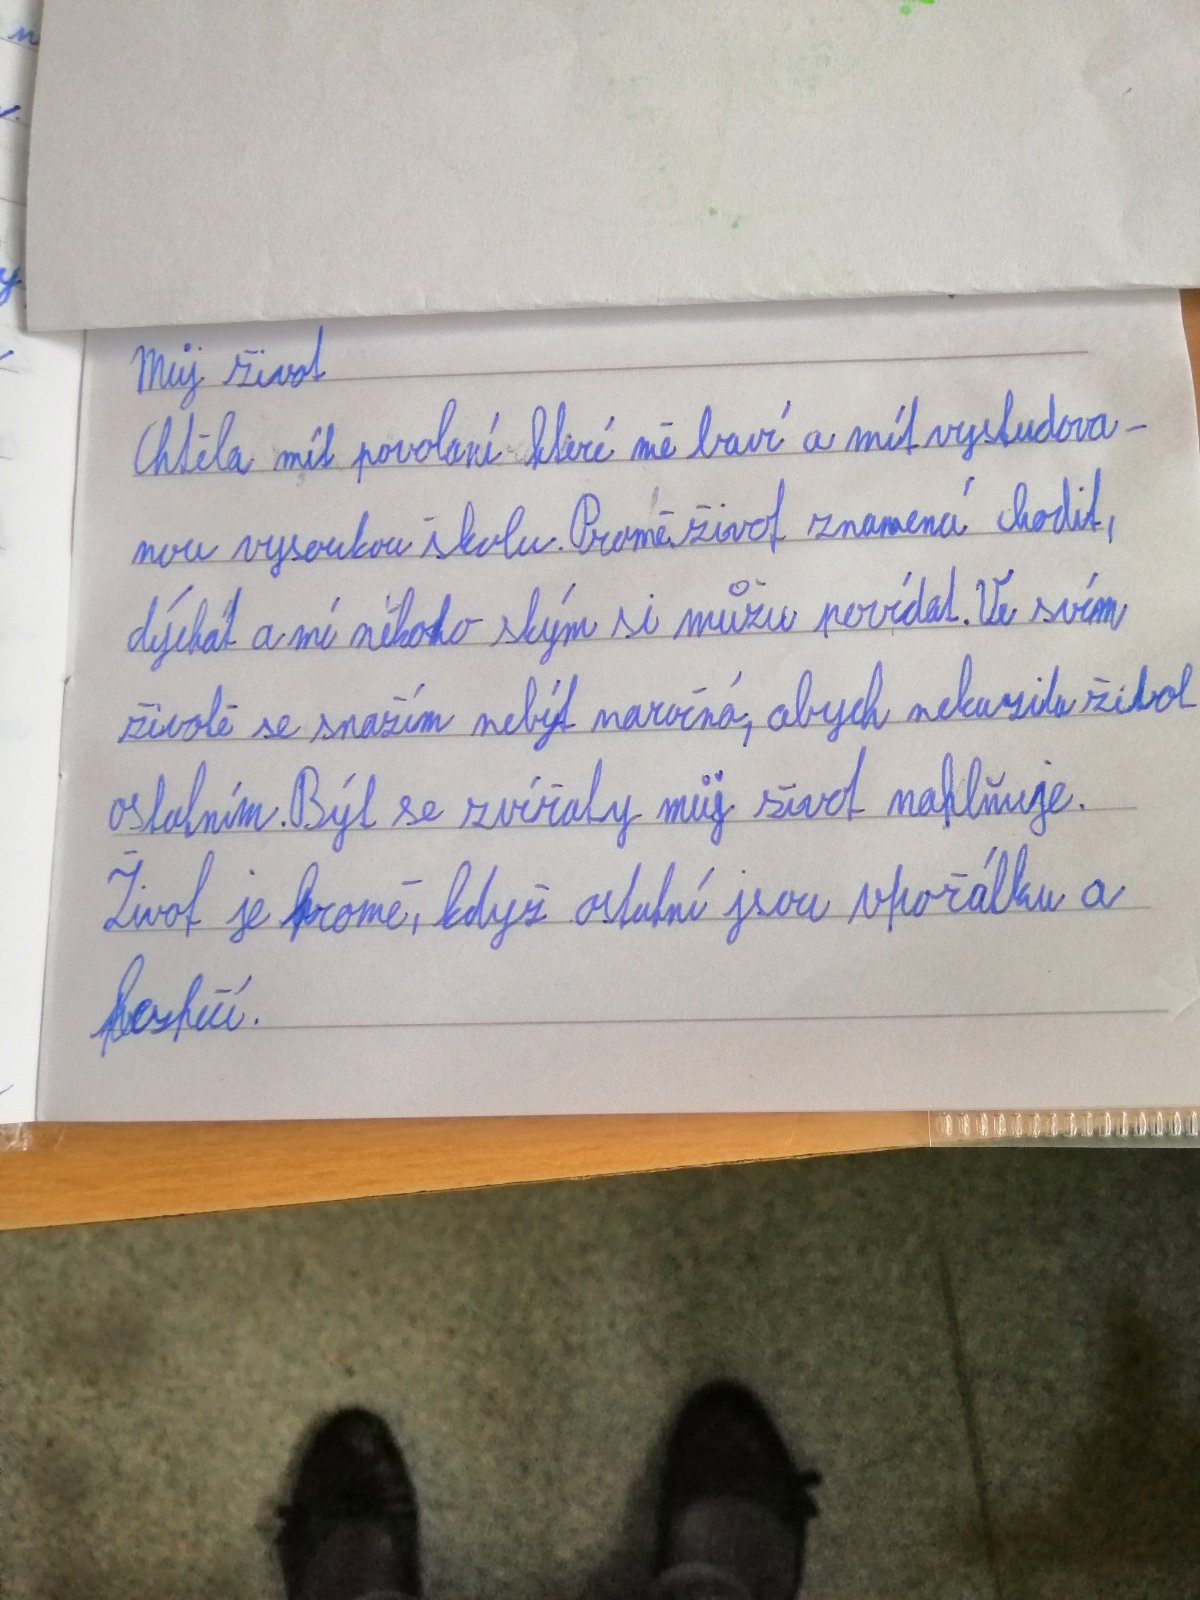 Můj život
Chtěla mít povolaní které mě baví a mít vystudova-
nou vysoukou školu. Promě život znamená chodit,
dýchát a mí někoho ským si můžu povídat. Ve svím
životě se snažím nebýt naročná, abych nekazila život
ostatním. Být se zvířaty můj život naplňuje.
Život je promě, když ostatní jsou vpořálku a
bezpečí.